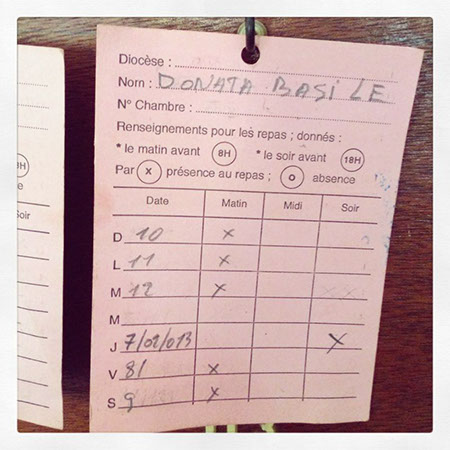 Diocèse :
Nom : DONATA BASILE
N° Chambre :
Renseignements pour les repas ; donnés :
* le matin avant 8H * le soir avant 18H
Par x présence au repas ; o absence
Date Matin Midi Soir
D 10 x
L 11 x
M 12 x
M
J 7/02/013 x
V 8/ x
S 9 x
Soir
8H)